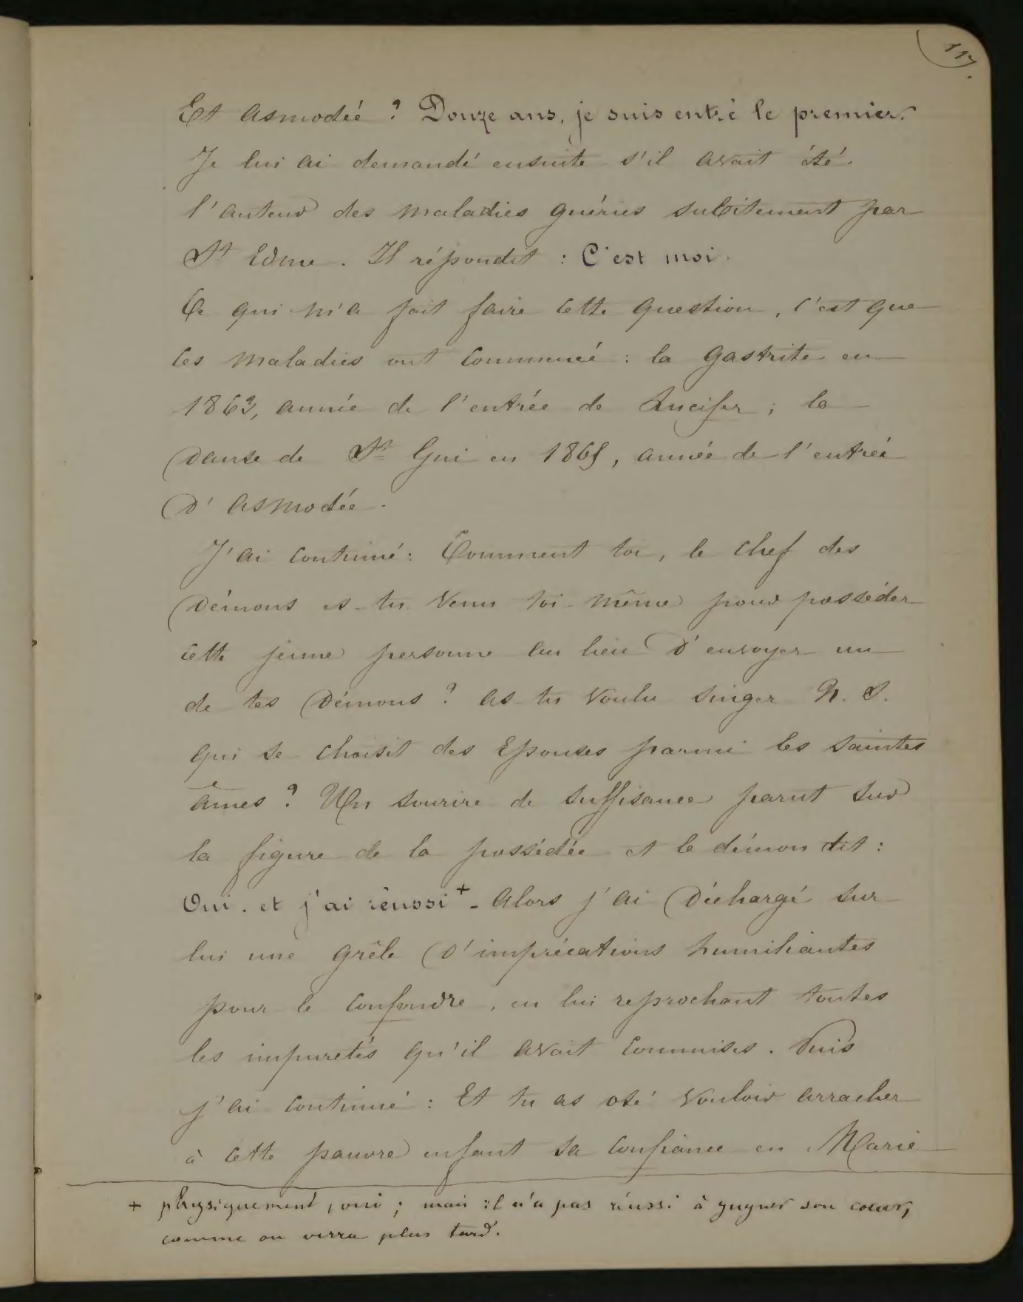 117.
Et Asmodée ? Douze ans, je suis entré le premier.
Je lui ai demandé ensuite s'il avait été
l'auteur des maladies guéries subitement par
St Edme. Il répondit : C'est moi.
Ce qui m'a fait faire cette question, c'est que
les maladies ont commencé : la gastrite en
1863, année de l'entrée de Lucifer ; la
Danse de St Gui en 1865, année de l'entrée
D'Asmodée.
J'ai continué : Comment toi, le chef des
Démons es-tu venu toi-même pour posséder
cette jeune personne au lieu D'envoyer un
de tes Démons ? As-tu voulu singer N. S.
qui se choisit des Epouses parmi les saintes
âmes ? Un sourire de suffisance parut sur
la figure de la possédée et le démon dit :
Oui, et j'ai réussi + - Alors j'ai Déchargé sur
lui une grêle D'imprécations humiliantes
pour le confondre, en lui reprochant toutes
les impuretés qu'il avait commises. Puis
j'ai continué : Et tu as osé vouloir arracher
à cette pauvre enfant sa confiance en Marie
+ physiquement, oui ; mais il n'a pas réussi à gagner son coeur,
comme on verra plus tard.